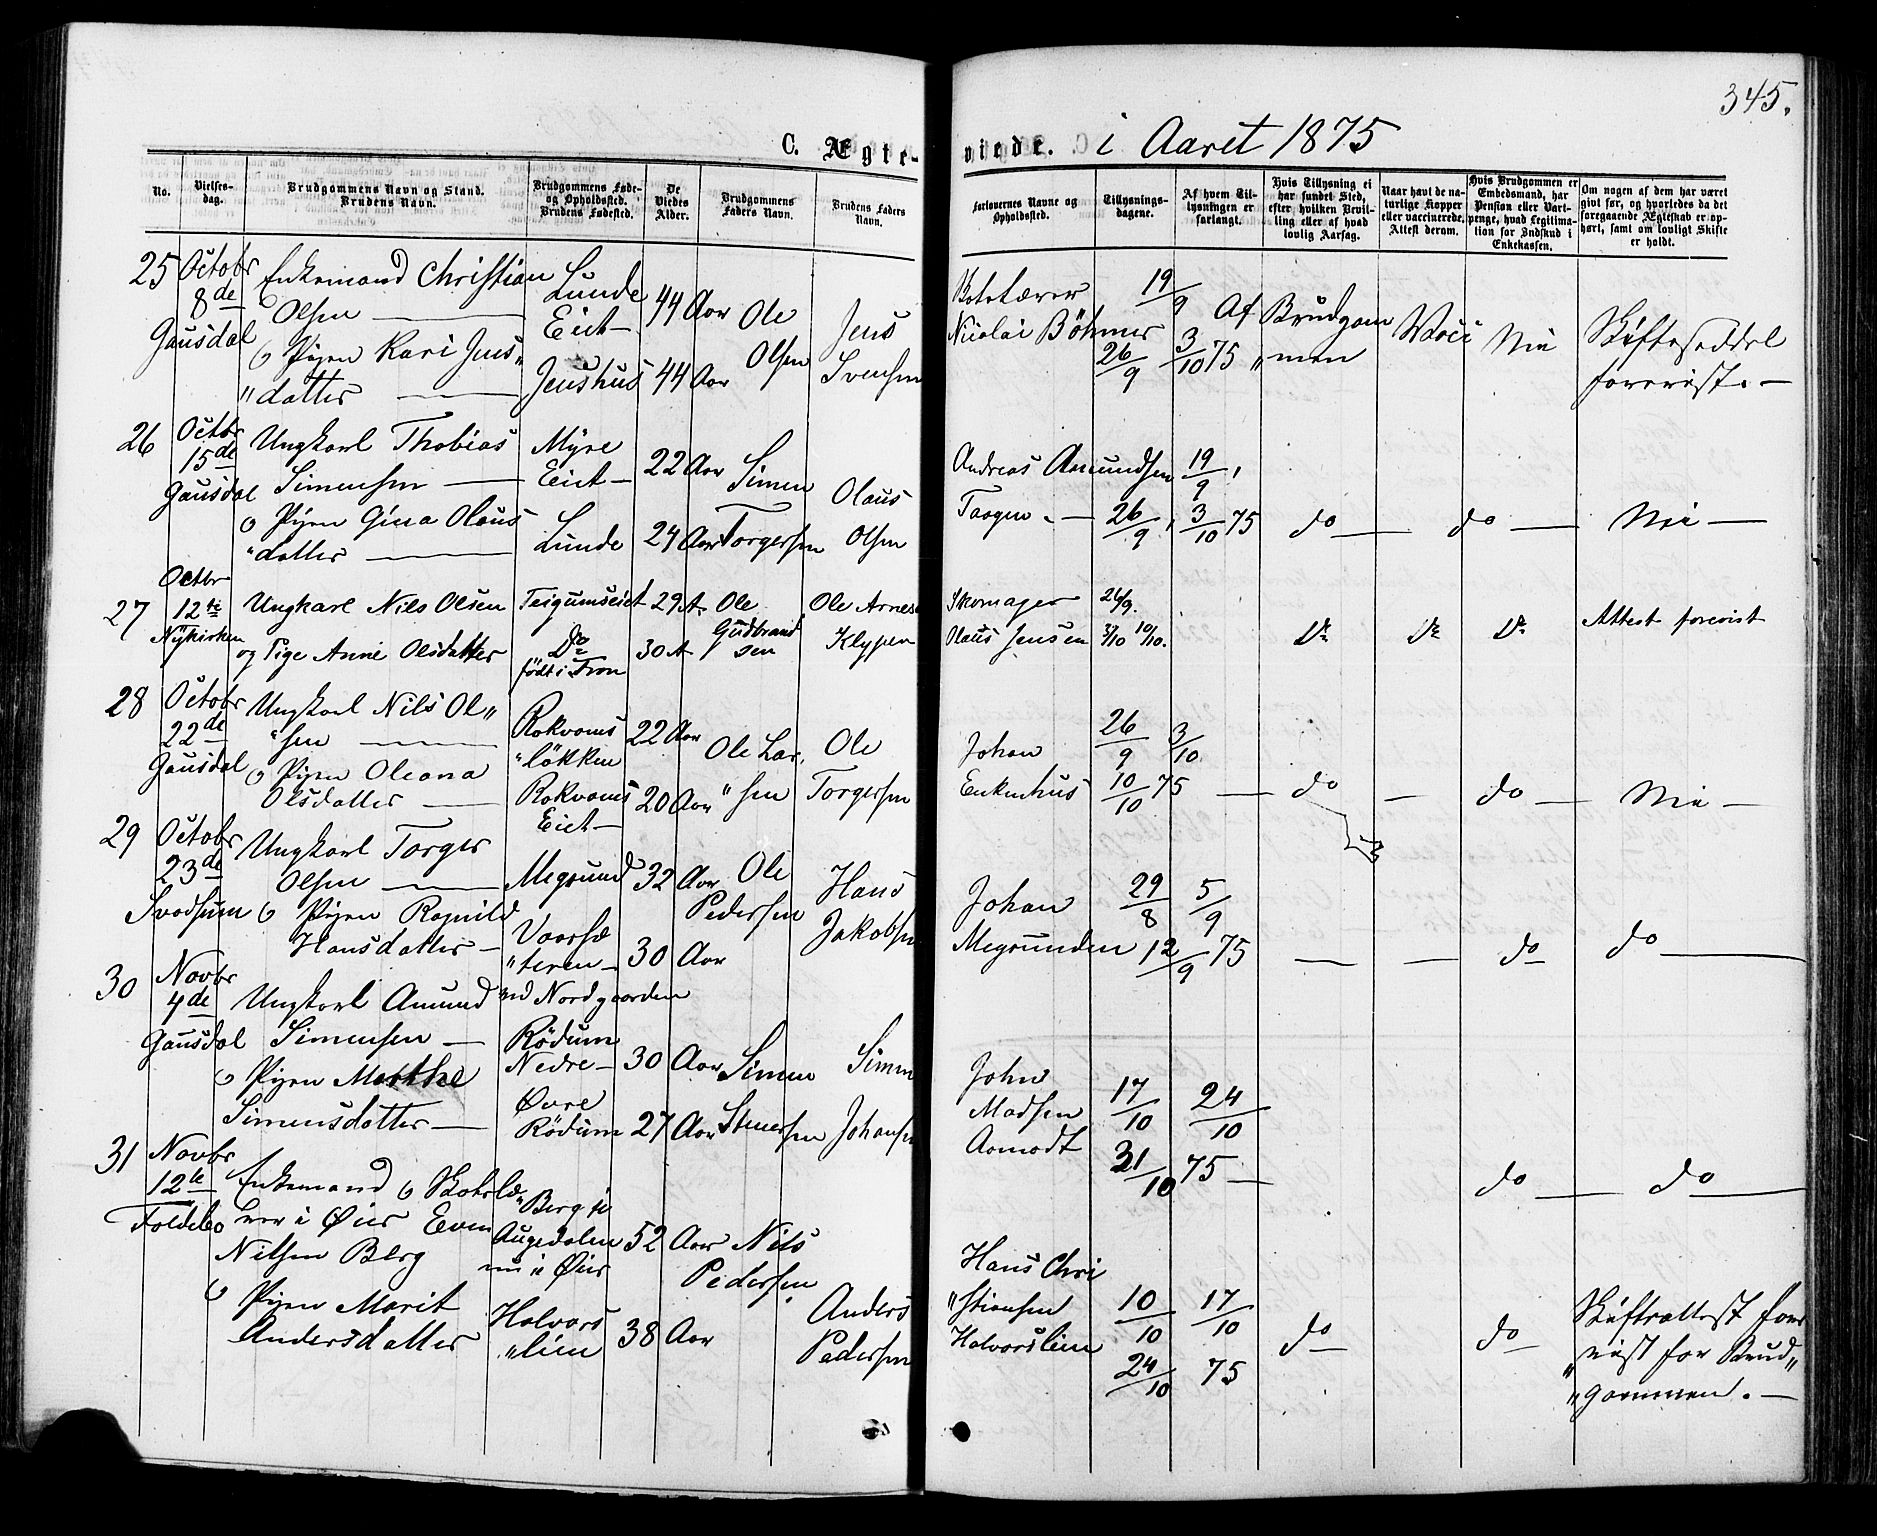 345.
C. Ægte-
viede. i Aaret 1875
No.
Vielses-
dag.
Brudgommens Navn og Stand.
Brudens Navn.
Brudgommens Føde-
og Opholdssted.
Brudens Fødested.
De
Viedes
Alder.
Brudgommens
Faders Navn.
Brudens Faders
Navn.
Forlovernes Navne og
Opholdssted.
Tillysnings-
dagene.
Af hvem Til-
lysningen er
forlangt.
Hvis Tillysning ei
har fundet Sted,
efter hvilken Bevil-
ling eller af hvad
lovlig Aarsag.
Naar havt de na-
turlige Kopper
eller vaccinerede.
Attest derom.
Hvis Brudgommen er
Embedsmand, har
Pension eller Vart-
penge, hvad Legitima-
tion for Indskud i
Enkekassen.
Om nogen af dem har været
gift før, og hvorledes da det
foregaaende Ægteskab er op-
hørt, samt om lovligt Skifte
er holdt.
25 Octobr
8de
Gausdal
Enkemand Christian
Olsen
Pigen Kari Jens„
„datter
Lunde
Eiet
Jenshus
44 Aar
44 Aar
Ole
Olsen
Jens
Svensen
Nicolai Böhmer
19/9
26/9 3/10 75
Af Brudgom
„men
Nei
Skifteseddel
forevist.
26 Octbr
15de
Gausdal
Ungkarl Thobias
Simensen
Pigen Gina Olaus
„datter
Myre
Eiet
Lunde
22 Aar
24 Aar
Simen
Torgersen
Olaus
Olsen
Andreas Amundsen
19/9
26/9 3/10 75
do
do
Nei
27 Octbr
12te
Nykirken
Ungkarl Nils Olsen
og Pige Anne Olsdatter
Do
født i Fron
29 A.
30 A
Ole
Gudbrand
sen
Ole Arnesen
Klypen
Skomager
Olaus Jensen
26/9.
3/10 10/10.
Do
Do
Do
Attest forevist
28 Octobr
22de
Gausdal
Ungkarl Nils Ol„
„sen
Pigen Oleana
Olsdatter
Rokvams
„løkken
Rokvams
Eiet
22 Aar
20 Aar
Ole Lar„
„sen
Ole
Torgersen
Johan
Enkenhus
26/9 3/10
10/10 75
do
do
Nei
29 Octobr
23de
Svadsum
Ungkarl Torger
Olsen
Pigen Ragnild
Hansdatter
Megrund
Vaarsæ
„teren
32 Aar
30 Aar
Ole
Pedersen
Hans
Jakobsen
Johan
Megrunden
29/8 5/9
12/9 75
do
do
30 Novbr
4de
Gausdal
Ungkarl Amund
Simensen
Pigen Marthe
Simensdatter
Nordgaarden
Rödum
Nedre
Øvre
Rödum
30 Aar
27 Aar
Simen
Simen
Johansen
John
Madsen
Aamodt
17/10 24/10
31/10 75
do
do
31 Novbr
12te
Foldebo
Enkemand Skolelæ
„rer i Øier Even
Nilsen Berg
Pigen Marit
Andersdatter
Berg i
Augedalen
nu i Øier
Halvors
„lien
52 Aar
38 Aar
Nils
Pedersen
Anders
Pedersen
Hans Chri
„stiansen
Halvorslien
10/10 17/10
24/10 75
do
do
Skifteattest fore
„vist for Brud„
„gommen.